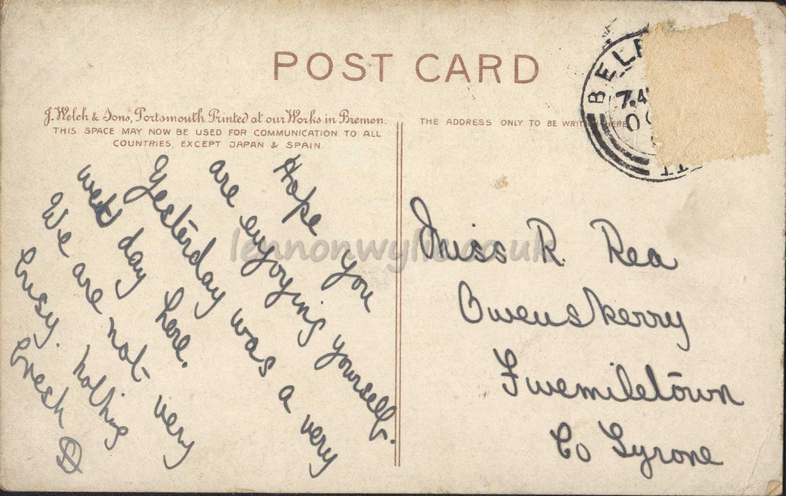 POST CARD
J. Welch & Sons, Portsmouth. Printed at our Works in Bremen.
THIS SPACE MAY NOW BE USED FOR COMMUNICATION TO ALL
COUNTRIES, EXCEPT JAPAN & SPAIN.
THE ADDRESS ONLY TO BE WRITTEN HERE
BELF
7.4
11
Hope you
are enjoying yourself.
Yesterday was a very
wet day here.
We are not very
busy. nothing
fresh
Miss R. Rea
Owenskerry
Fivemiletown
Co Tyrone
lennonwylie.co.uk